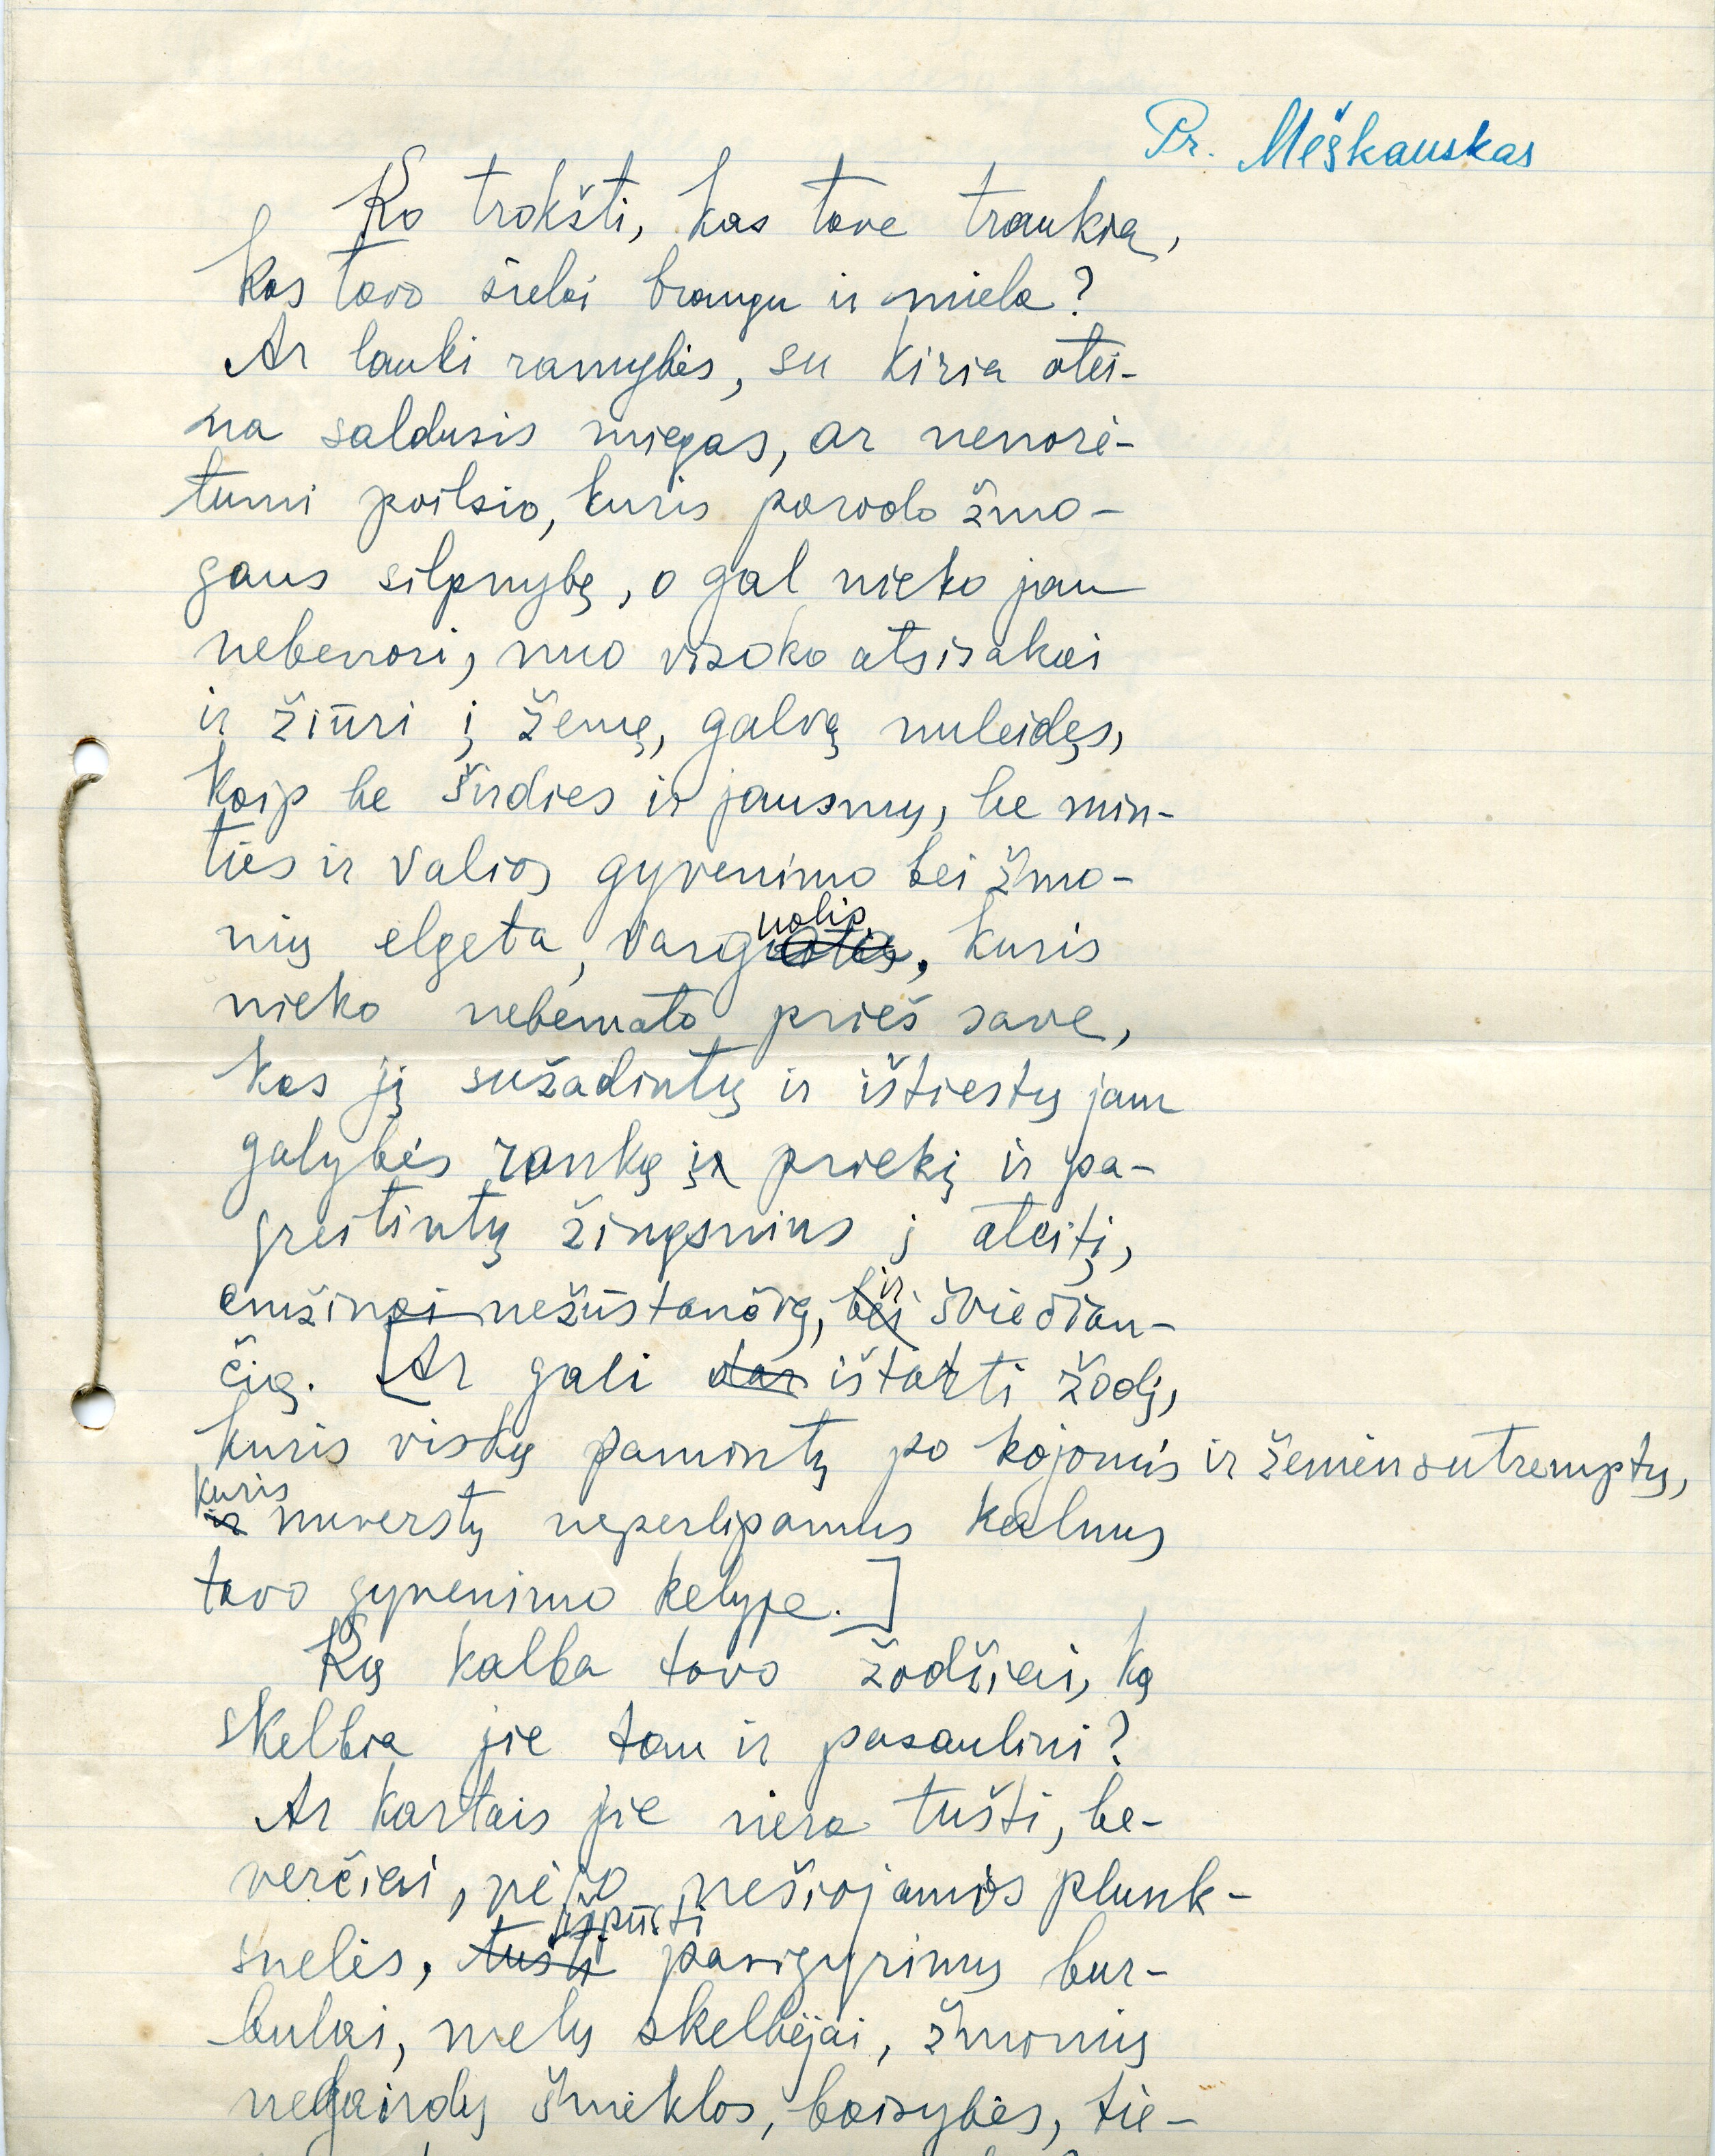 Pr. Meškauskas
Ko trokšti, kas tave traukia,
kas tavo sielai brangu ir miela?
Ar lauki ramybės, su kiria atei-
na saldusis miegas, ar nenorė-
tumi poilsio, kuris parodo žmo-
gaus silpnybę, o gal nieko jau
nebenori, nuo visoko atsisakai
ir žiūri į žemę, galvą nuleidęs,
kaip be širdies ir jausmų, be min-
ties ir valios gyvenimo bei žmo-
nių elgeta, varguolis, kuris
nieko nebemato prieš save,
kas jį sužadintų ir ištiestų jam
galybės ranką į priekį ir pa-
greitintų žingsnius į ateitį,
amžinai nežūstančią, bei ir šviečian-
čią. [Ar gali dar ištarti žodį,
kuris viską pamintų po kojomis ir žemėn sutremptų,
ir kuris nuverstų neperlipamus kalnus
tavo gyvenimo kelyje.]
Ką kalba tavo žodžiai, ką
skelbia jie tau ir pasauliui?
Ar kartais jie nėra tušti, be-
verčiai, vėjo nešiojamos plunk-
snelės, tušti išpūsti pasigyrimų bur-
bulai, melų skelbėjai, žmonių
negandų šmėklos, baisybės, tie-